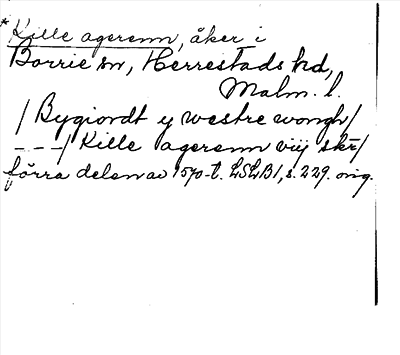 *Kille agerenn, åker i
Borrie sn, Herrestads hd,
Malm. l.
/Bygiordt y westre wongh/
---/Kille agerenn viij skr/
förra delen av 1570-t. LSLB1, s. 229. orig.